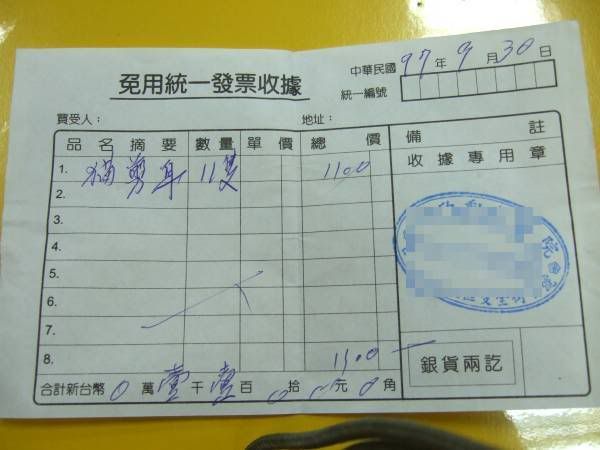 免用統一發票收據
中華民國 97 年 9 月 30 日
統一編號
買受人： 地址：
品名摘要 數量 單價 總價 備註
收據專用章
1. 貓剪耳 11隻 1100
2.
3.
4.
5.
6.
7.
8. 1100
銀貨兩訖
合計新台幣 0 萬 壹 千 壹 百 0 拾 0 元 0 角